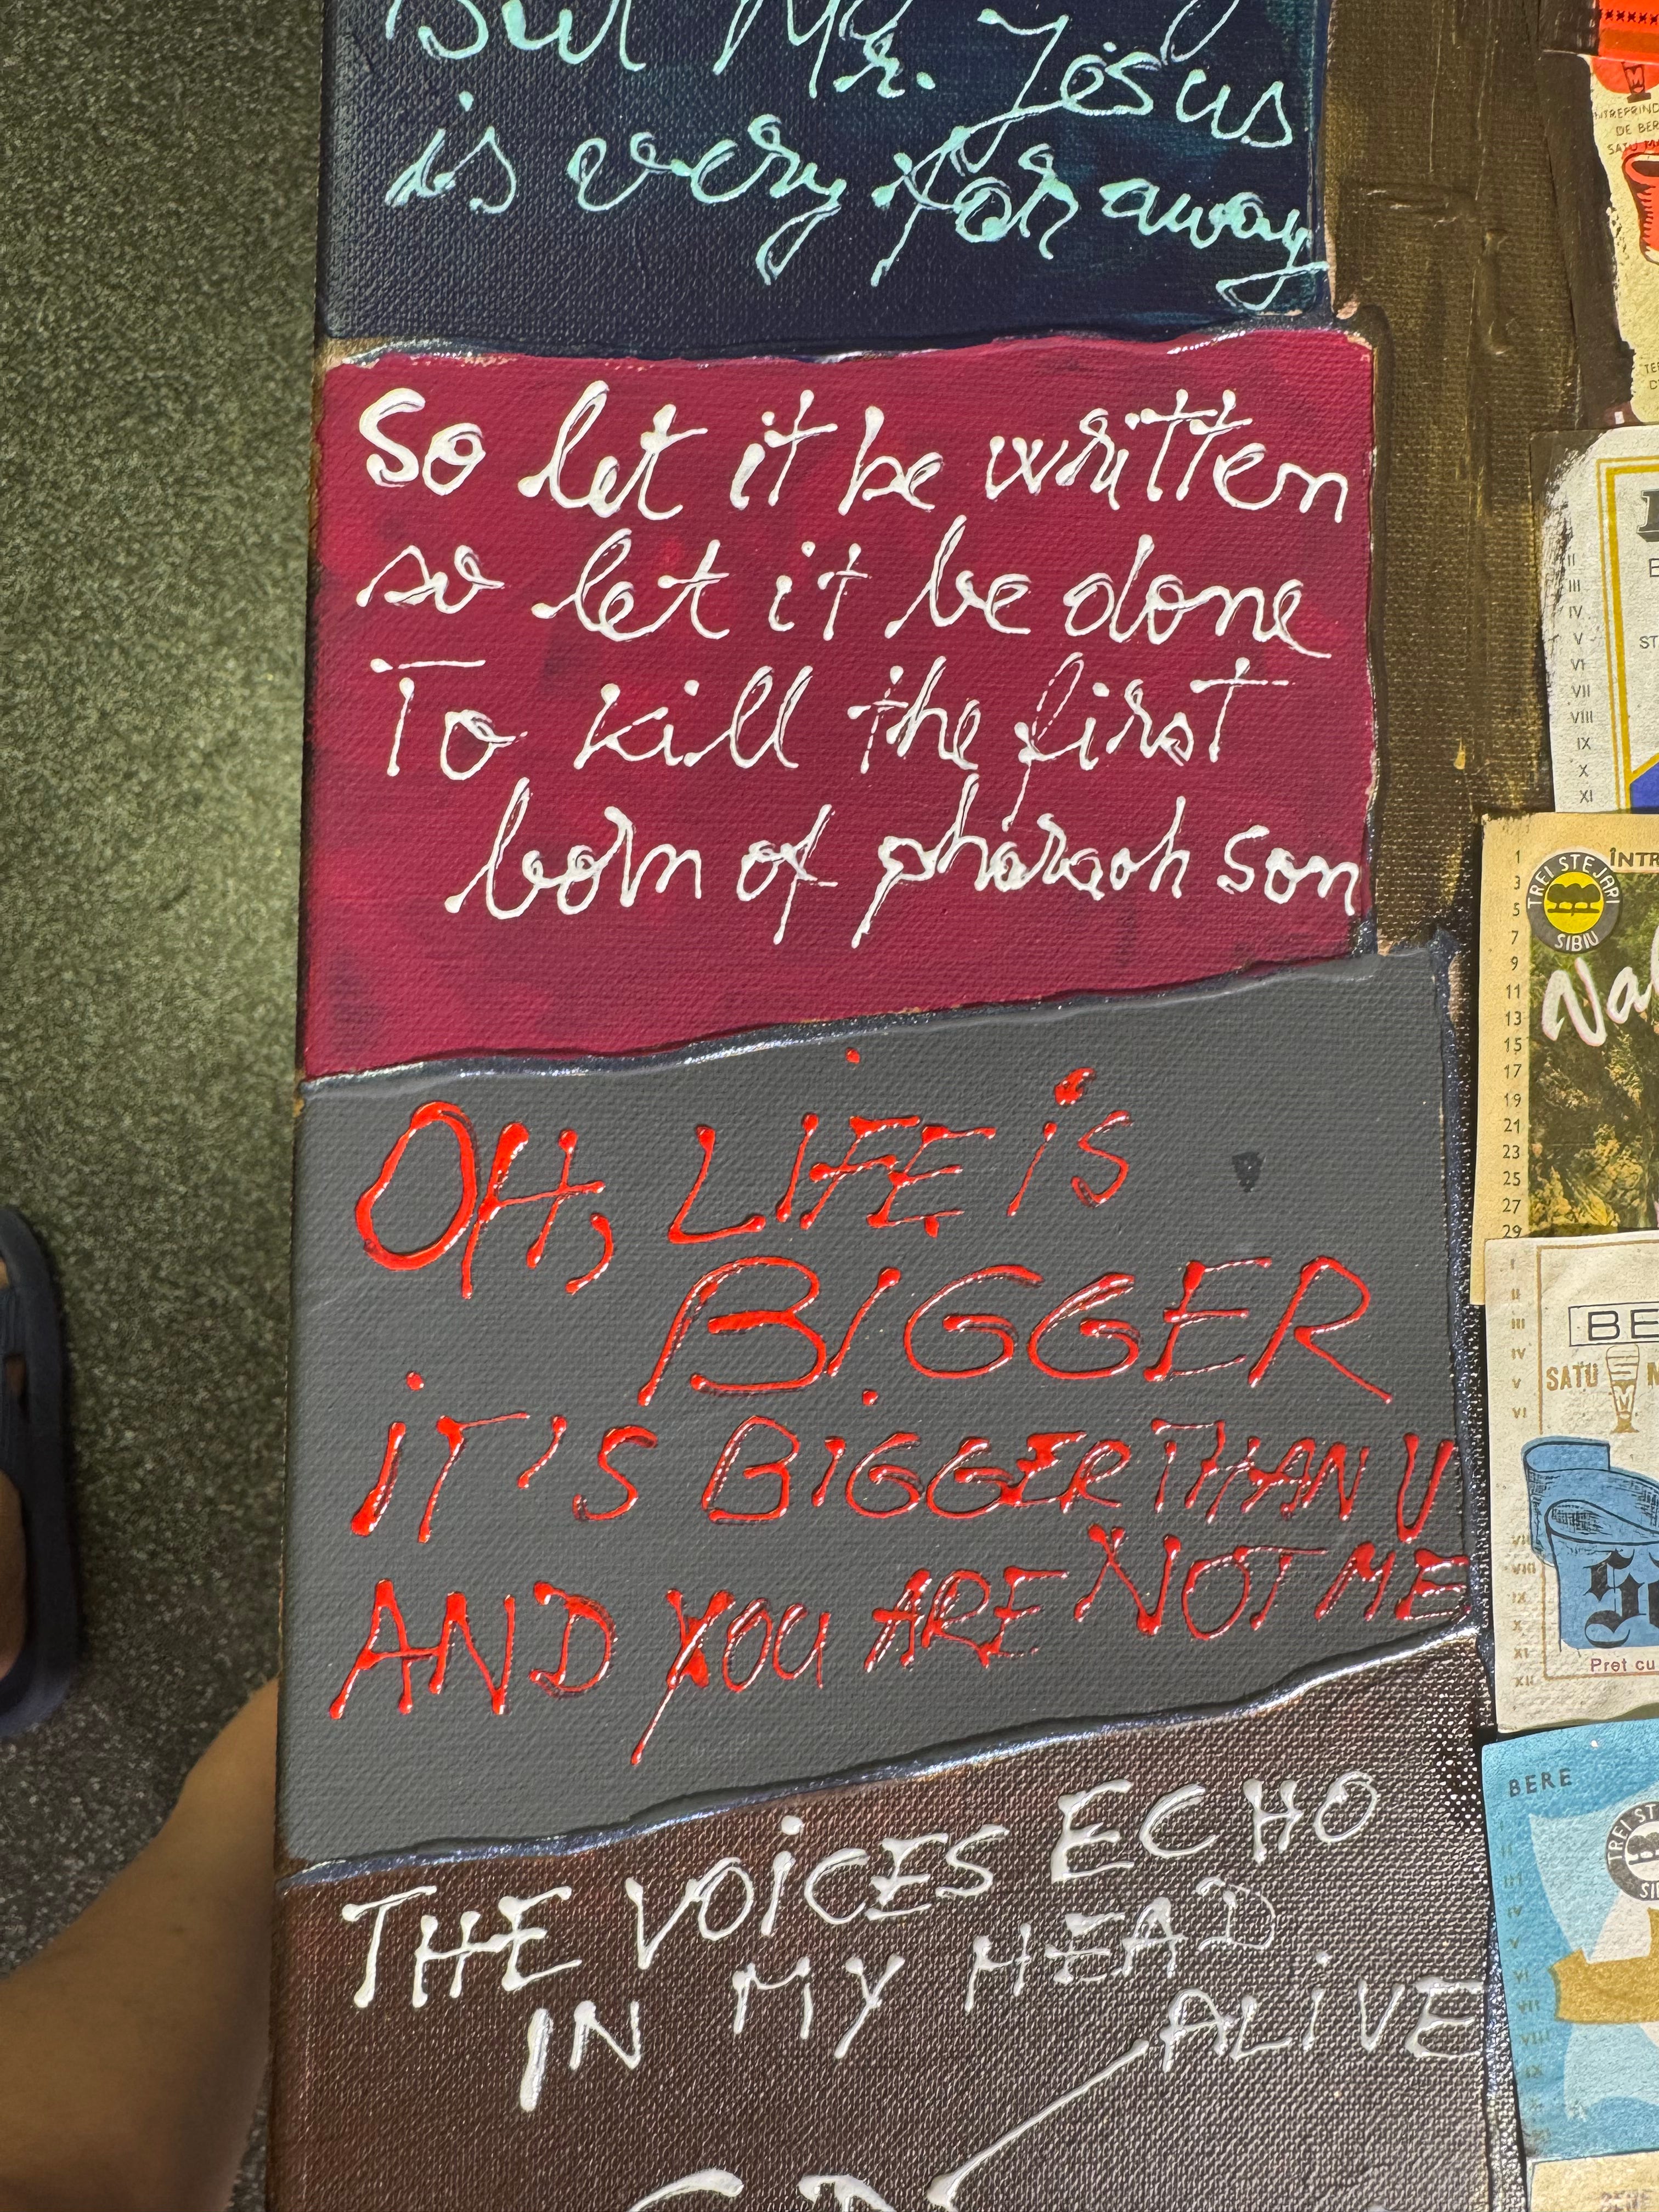 But Mr. Jesus
is very far away
So let it be written
so let it be done
To kill the first
born of pharaoh son
OH, LiFE iS
BIGGER
iT'S BiGGER THAN U
AND YOU ARE NOT ME
THE VOiCES ECHO
IN MY HEAD
ALiVE
DE BER
II
III
IV
V
VI
VII
VIII
IX
X
XI
ST
1
3
5
7
9
11
13
15
17
19
21
23
25
27
29
ÎNTR
TREI STEJARI
SIBIU
Val
I
II
III
IV
V
VI
VII
VIII
IX
X
XI
XII
BE
SATU M
Pret cu
BERE
TREI ST
SI